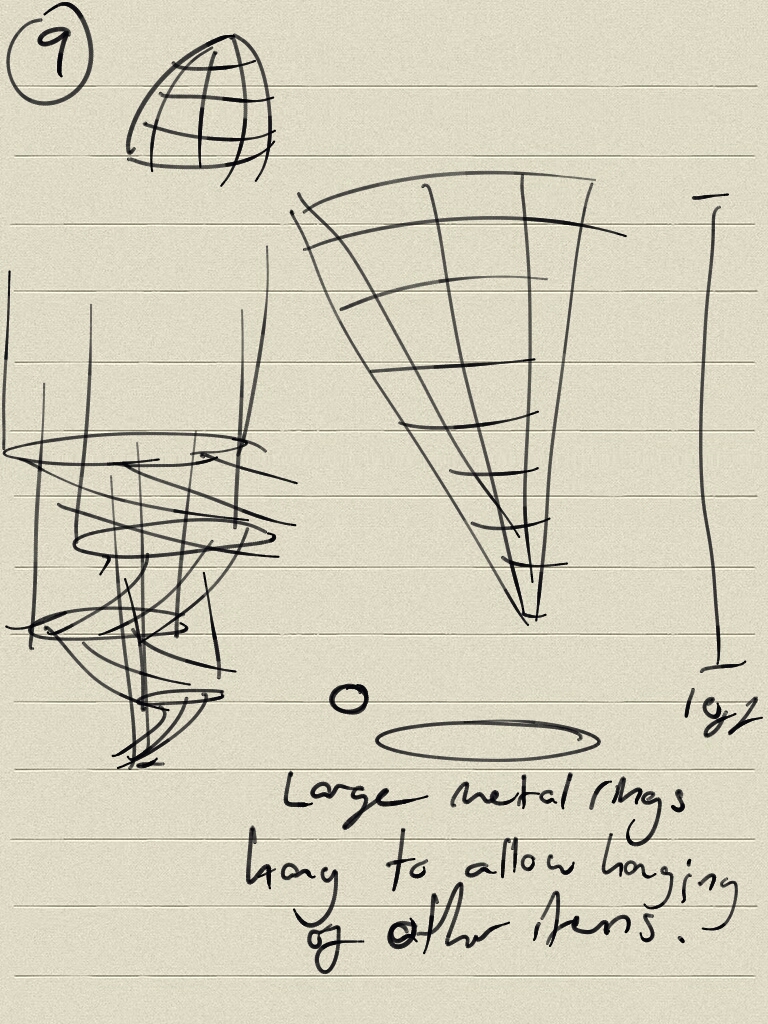 9
Large metal rings
hang to allow hanging
of other items.